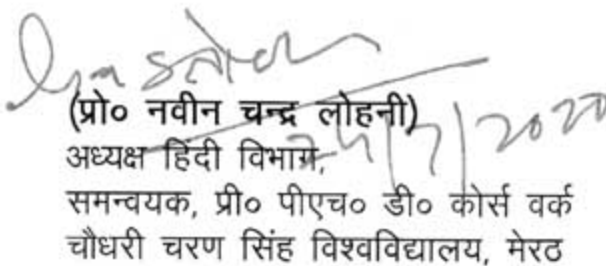 (प्रो० नवीन चन्द्र लोहनी)
अध्यक्ष हिंदी विभाग,
समन्वयक, प्री० पीएच० डी० कोर्स वर्क
चौधरी चरण सिंह विश्वविद्यालय, मेरठ